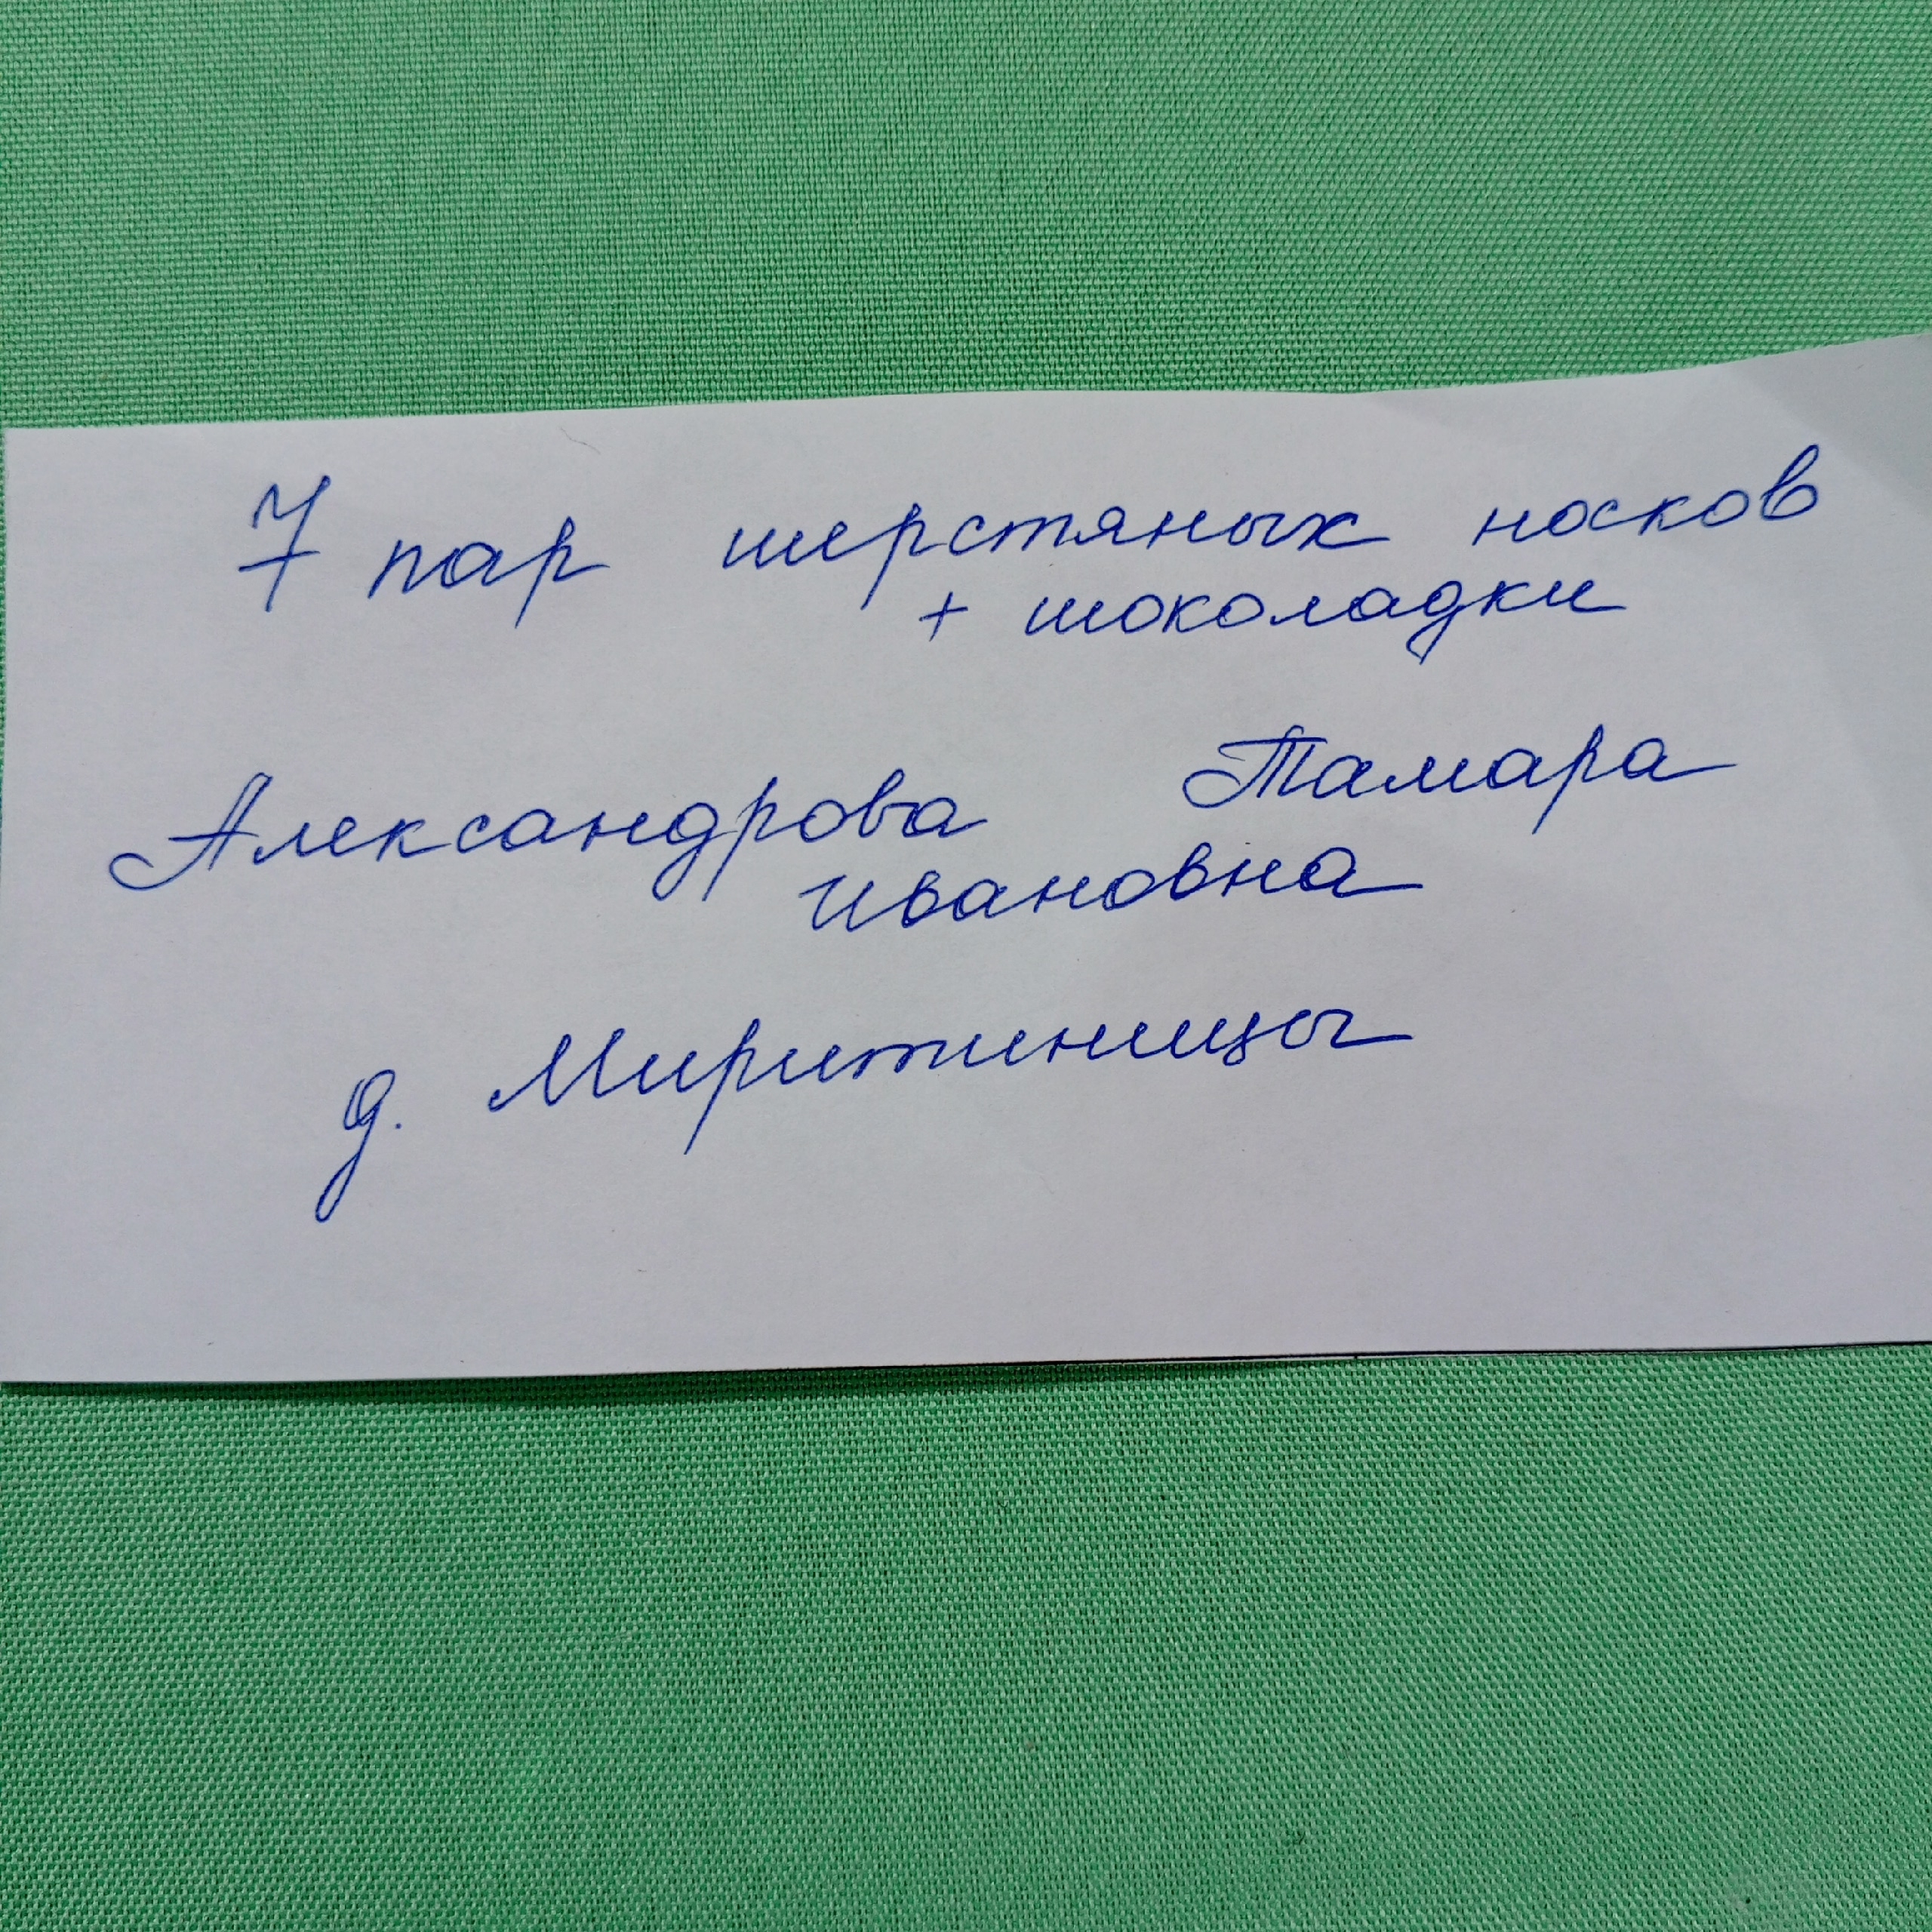 7 пар шерстяных носков
+ шоколадки
Александрова Тамара
Ивановна
д. Миритиницы